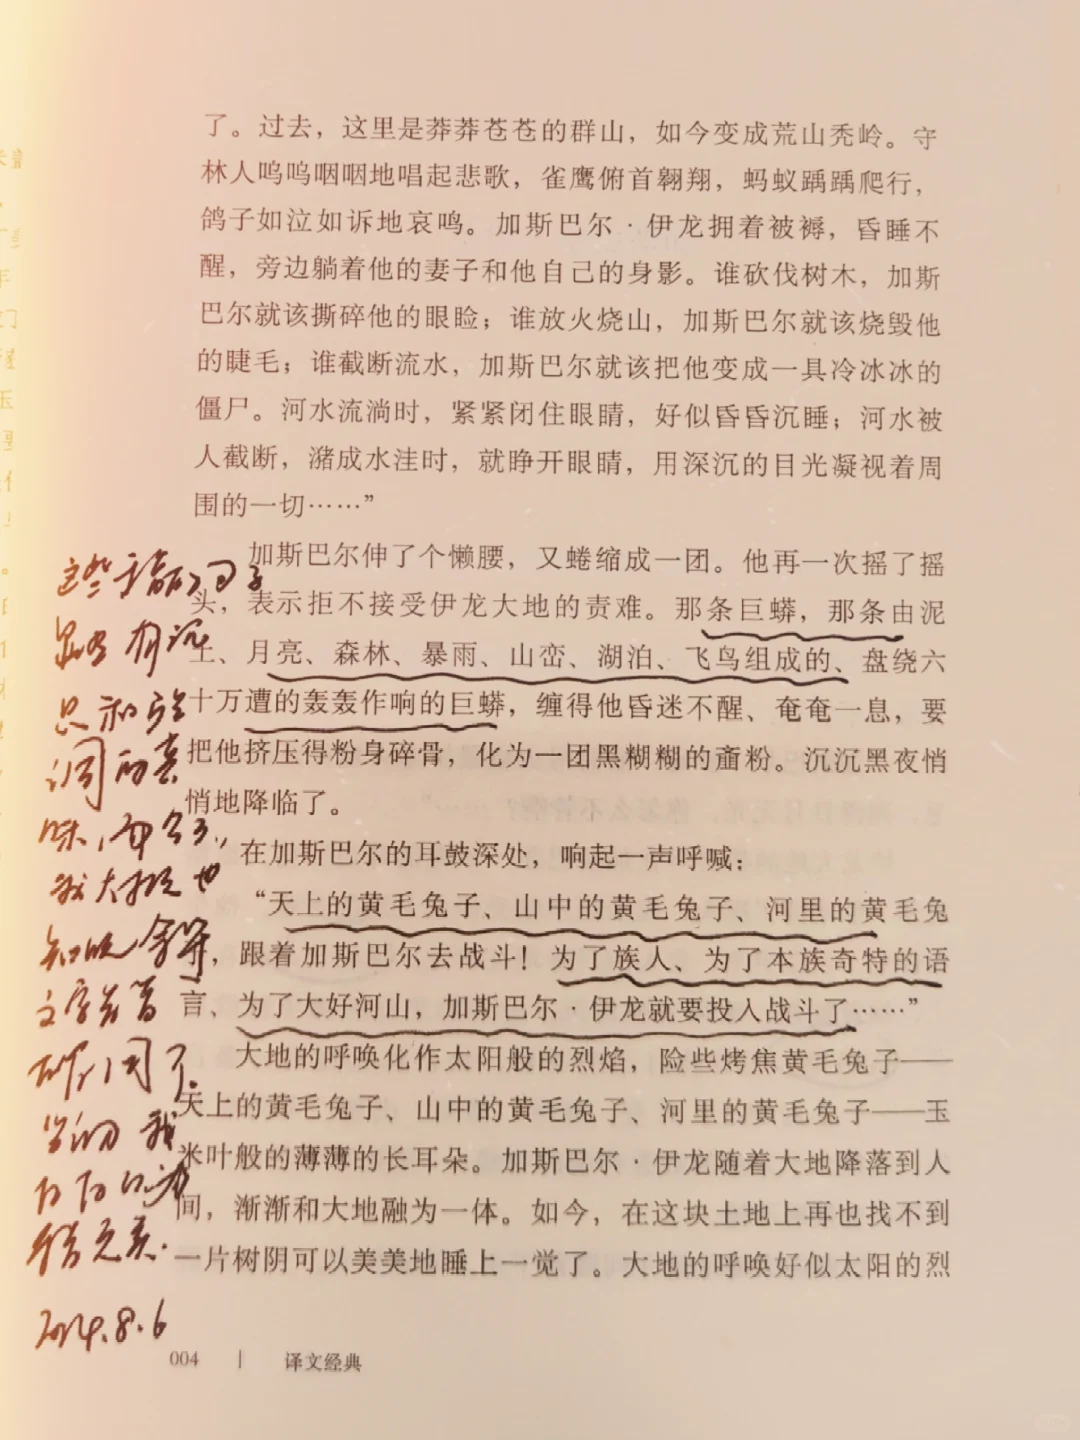 了。过去，这里是莽莽苍苍的群山，如今变成荒山秃岭。守
林人呜呜咽咽地唱起悲歌，雀鹰俯首翱翔，蚂蚁踽踽爬行，
鸽子如泣如诉地哀鸣。加斯巴尔·伊龙拥着被褥，昏睡不
醒，旁边躺着他的妻子和他自己的身影。谁砍伐树木，加斯
巴尔就该撕碎他的眼睑；谁放火烧山，加斯巴尔就该烧毁他
的睫毛；谁截断流水，加斯巴尔就该把他变成一具冷冰冰的
僵尸。河水流淌时，紧紧闭住眼睛，好似昏昏沉睡；河水被
人截断，潴成水洼时，就睁开眼睛，用深沉的目光凝视着周
围的一切……”
加斯巴尔伸了个懒腰，又蜷缩成一团。他再一次摇了摇
头，表示拒不接受伊龙大地的责难。那条巨蟒，那条由泥
土、月亮、森林、暴雨、山峦、湖泊、飞鸟组成的、盘绕六
十万遭的轰轰作响的巨蟒，缠得他昏迷不醒、奄奄一息，要
把他挤压得粉身碎骨，化为一团黑糊糊的齑粉。沉沉黑夜悄
悄地降临了。
在加斯巴尔的耳鼓深处，响起一声呼喊：
“天上的黄毛兔子、山中的黄毛兔子、河里的黄毛兔
子，跟着加斯巴尔去战斗！为了族人、为了本族奇特的语
言、为了大好河山，加斯巴尔·伊龙就要投入战斗了……”
大地的呼唤化作太阳般的烈焰，险些烤焦黄毛兔子——
天上的黄毛兔子、山中的黄毛兔子、河里的黄毛兔子——玉
米叶般的薄薄的长耳朵。加斯巴尔·伊龙随着大地降落到人
间，渐渐和大地融为一体。如今，在这块土地上再也找不到
一片树阴可以美美地睡上一觉了。大地的呼唤好似太阳的烈
这些
句子
和
调的意
味，
我大概也
文字
了
我
2024.8.6
004 | 译文经典